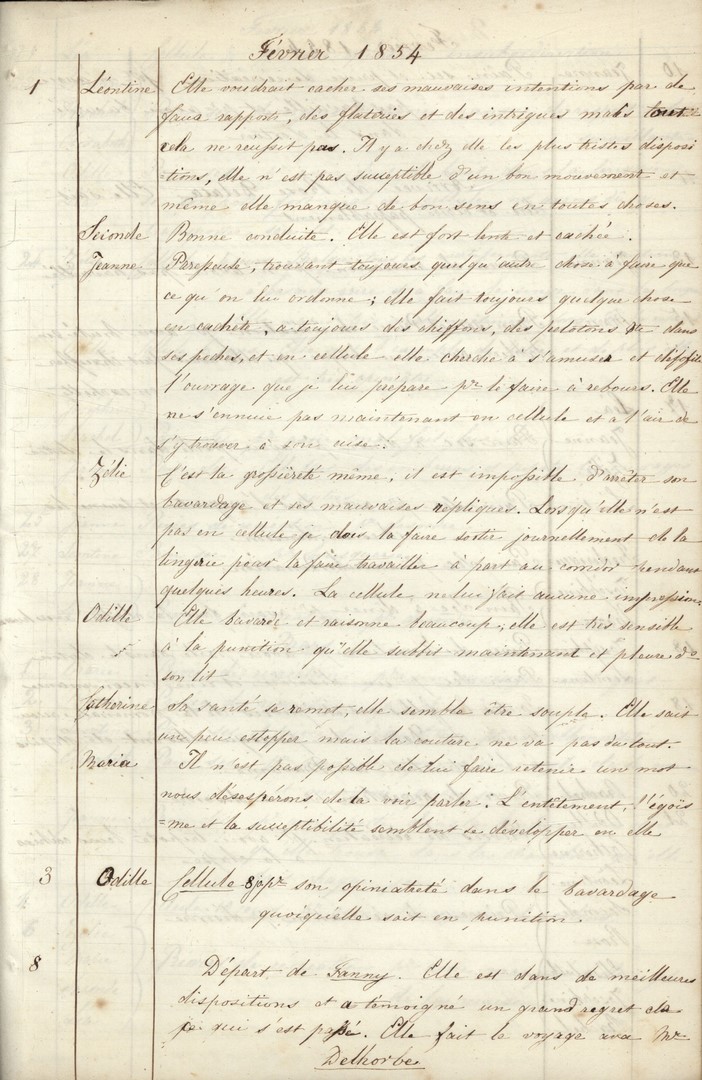 Février 1854
1 Léontine Elle voudrait cacher ses mauvaises intentions par de
faux rapports, des flateries et des intrigues mais tout
cela ne réussit pas. Il y a chez elle les plus tristes disposi
=tions, elle n'est pas susceptible d'un bon mouvement et
même elle manque de bon sens en toutes choses.
Seconde Bonne conduite. Elle est fort lente et cachée.
Jeanne Paresseuse, trouvant toujours quelqu'autre chose à faire que
ce qu'on lui ordonne; elle fait toujours quelque chose
en cachète, a toujours des chiffons, des pelotons &c dans
ses poches, et en cellule elle cherche à s'amuser et défofile
l'ouvrage que je lui prépare pr le faire à rebours. Elle
ne s'ennuie pas maintenant en cellule et a l'air de
s'y trouver à son aise.
Zélie C'est la grossièreté même, il est impossible d'arrêter son
bavardage et ses mauvaises répliques. Lorsqu'elle n'est
pas en cellule je dois la faire sortir journellement de la
lingerie pour la faire travailler à part au corridor pendant
quelques heures. La cellule ne lui fait aucune impression.
Odille Elle bavarde et raisonne beaucoup, elle est très sensible
à la punition qu'elle subit maintenant et pleure ds
son lit
Catherine Sa santé se remet, elle semble être souple. Elle sait
un peu estopper mais la couture ne va pas du tout.
Maria Il n'est pas possible de lui faire retenir un mot
nous désespérons de la voir parler. L'entêtement, l'égoïs
=me et la susceptibilité semblent se développer en elle
3 Odille Cellule 8 j pr son opiniatreté dans le bavardage
quoiqu'elle soit en punition.
8 Départ de Fanny. Elle est dans de meilleures
dispositions et a témoigné un grand regret de
ce qui s'est passé. Elle fait le voyage avec Mr
Delhorbe